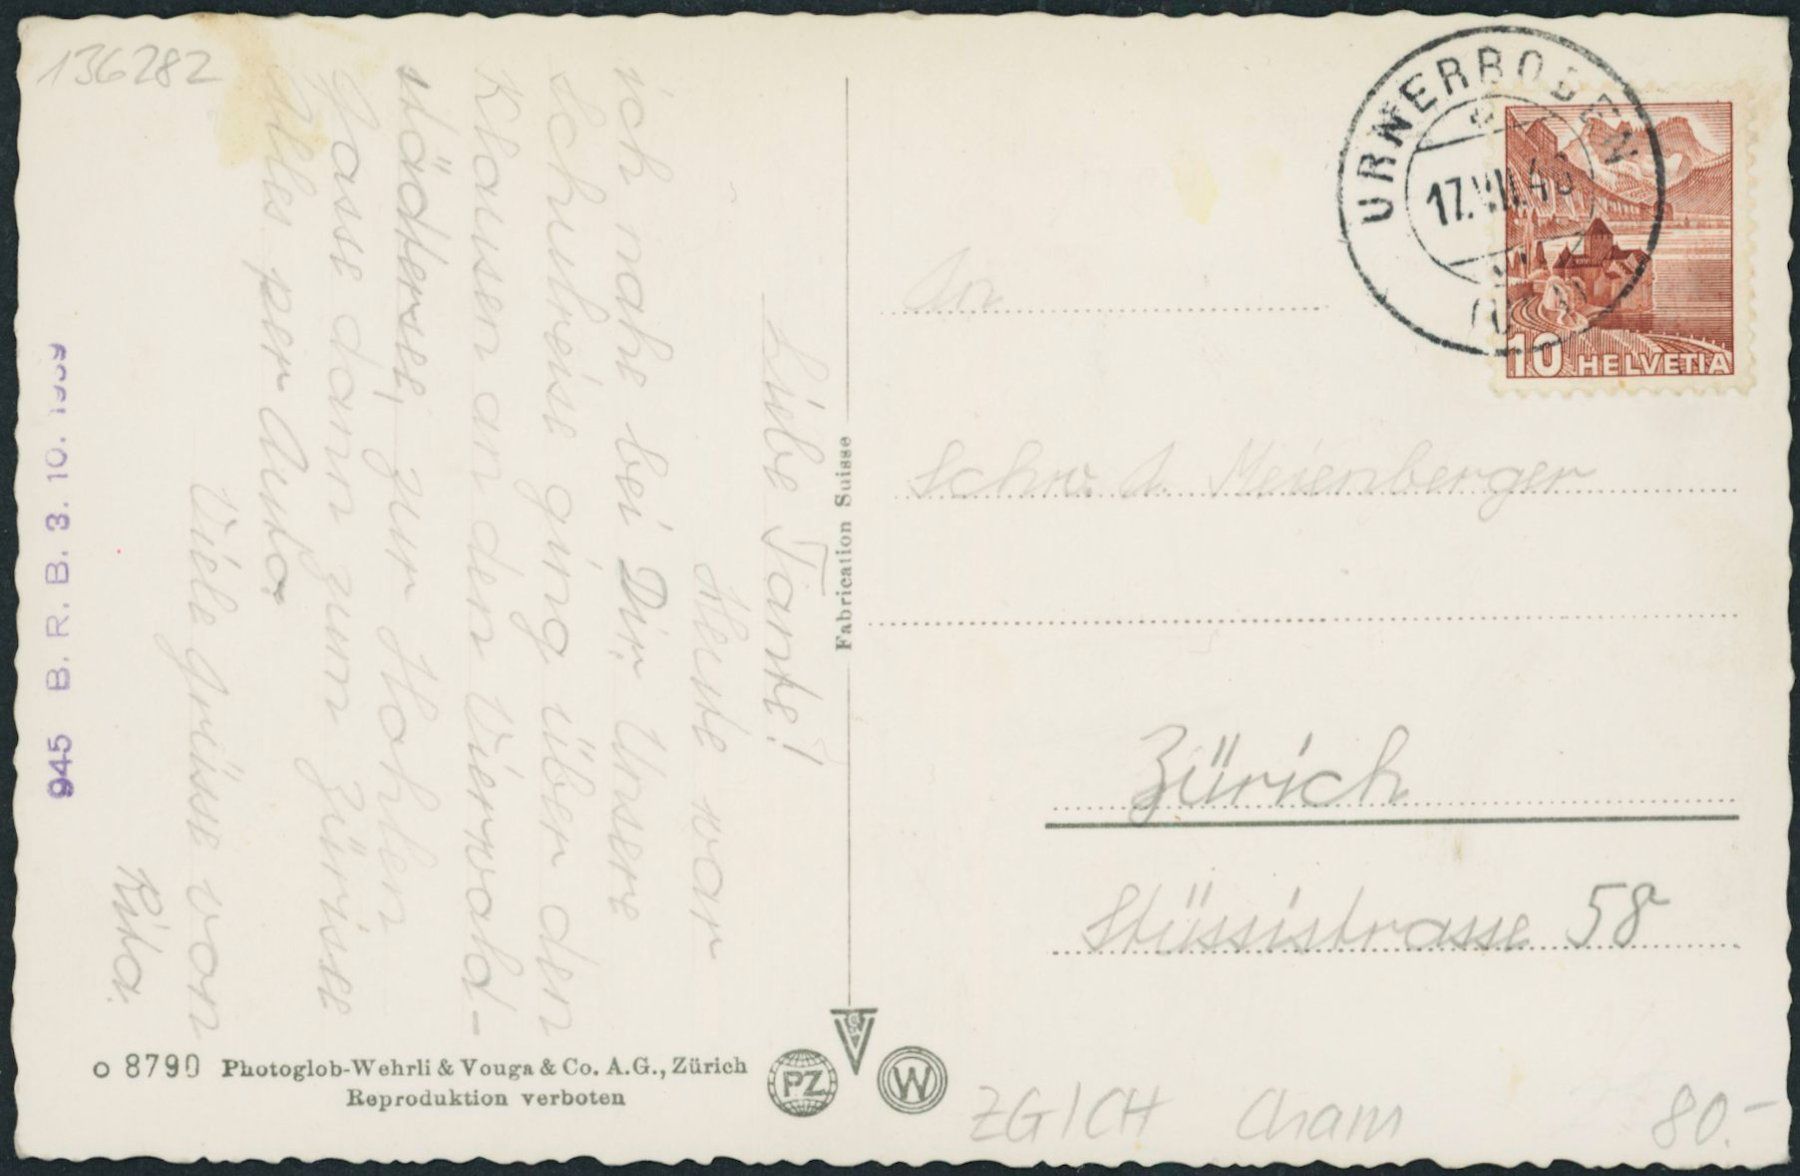 136282
Liebe Tante!
Heute war
ich nahe bei Dir. Unsere
Schulreise ging über den
Klausen an den Vierwald-
städtersee, zur Hohlen
Gasse dann zum Zürisee
Alles per Auto.
Viele Grüsse von
Rita.
945 B. R. B. 3. 10. 1939
o 8790 Photoglob-Wehrli & Vouga & Co. A.G., Zürich
Reproduktion verboten
Fabrication Suisse
PZ
W
URNERBODEN
17. VII. 4
(URI)
10 HELVETIA
An
Schw. A. Meienberger
Zürich
Stüssistrasse 58
ZG/CH Cham 80.-